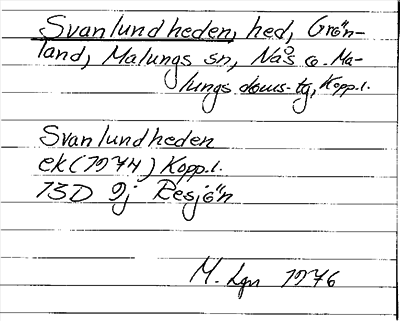 Svanlundheden, hed, Grön-
land, Malungs sn, Nås o. Ma-
lungs doms-tg, Kopp.l.
Svanlundheden
ek (1974) Kopp.l.
13D 9j Resjön
M. Lgn 1976